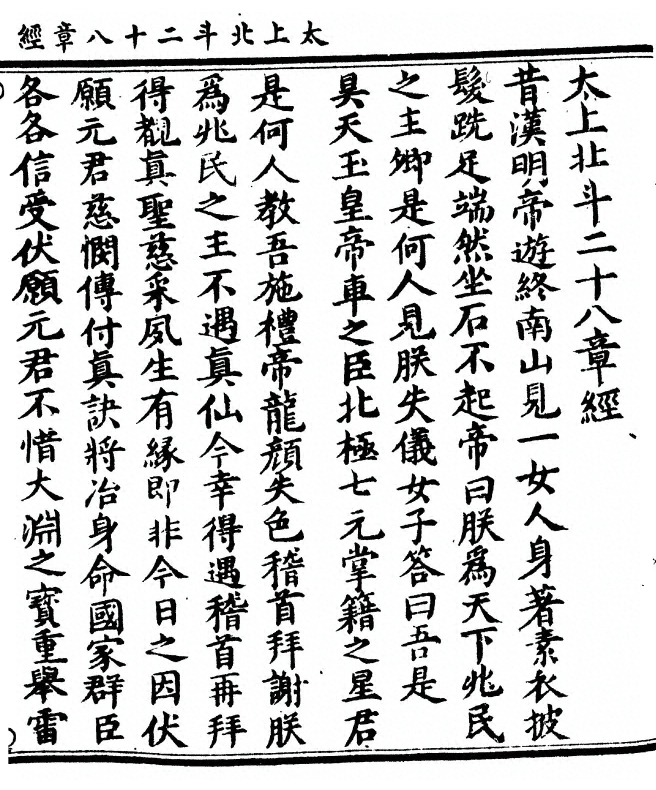 太上北斗二十八章經
太上北斗二十八章經
昔漢明帝遊終南山見一女人身著素衣披
髮跣足端然坐石不起帝曰朕爲天下兆民
之主卿是何人見朕失儀女子答曰吾是
昊天玉皇帝車之臣北極七元掌籍之星君
是何人教吾施禮帝龍顏失色稽首拜謝朕
爲兆民之主不遇眞仙今幸得遇稽首再拜
得覩眞聖慈采夙生有緣即非今日之因伏
願元君慈憫傳付眞訣將冶身命國家群臣
各各信受伏願元君不惜大淵之寳重舉雷